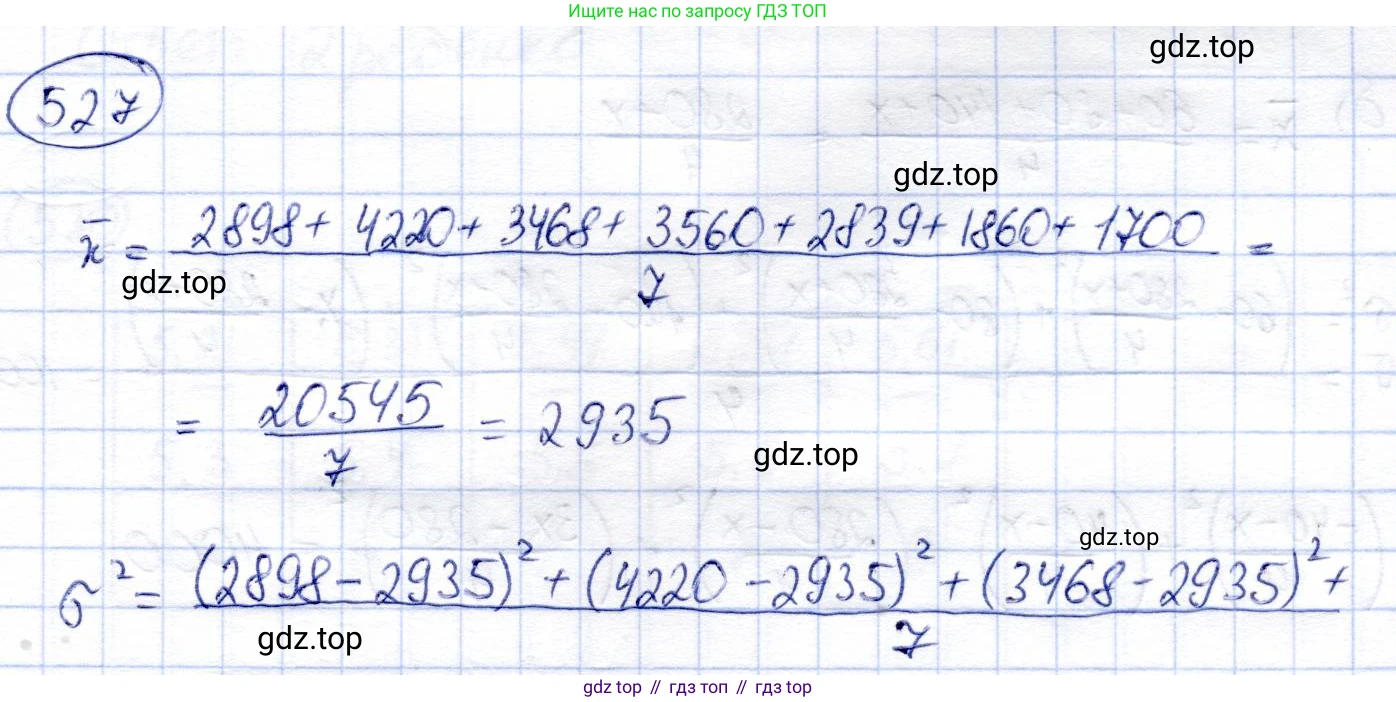 Ищите нас по запросу ГДЗ ТОП
gdz.top
527
gdz.top
x̄ = (2898 + 4220 + 3468 + 3560 + 2839 + 1860 + 1700) / 7 =
gdz.top
= 20545 / 7 = 2935
gdz.top
gdz.top
σ² = ((2898 − 2935)² + (4220 − 2935)² + (3468 − 2935)² + / 7
gdz.top
gdz top // гдз топ // гдз top